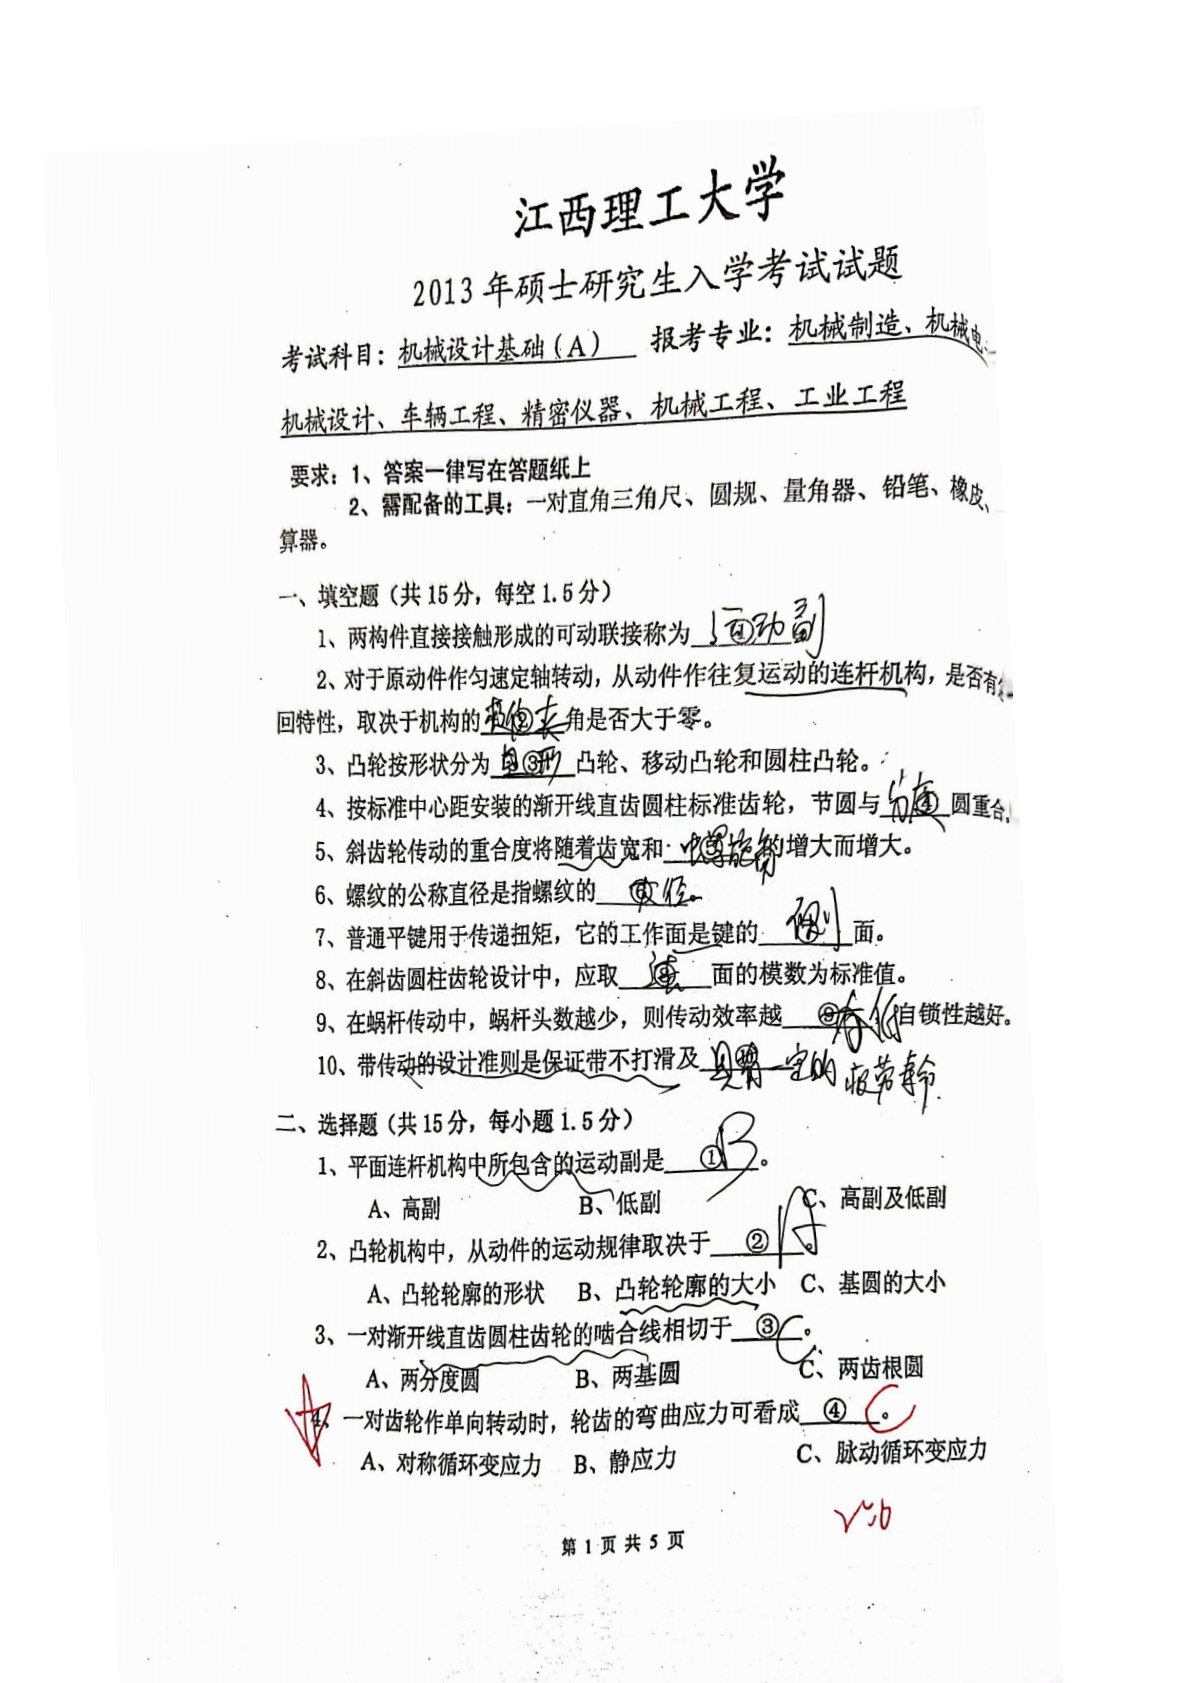 江西理工大学
2013年硕士研究生入学考试试题
考试科目：机械设计基础（A） 报考专业：机械制造、机械电
机械设计、车辆工程、精密仪器、机械工程、工业工程
要求：1、答案一律写在答题纸上
2、需配备的工具：一对直角三角尺、圆规、量角器、铅笔、橡皮、
算器。
一、填空题（共15分，每空1.5分）
1、两构件直接接触形成的可动联接称为 ① 运动副
2、对于原动件作匀速定轴转动，从动件作往复运动的连杆机构，是否有急
回特性，取决于机构的 极位② 夹 角是否大于零。
3、凸轮按形状分为 ③ 形 凸轮、移动凸轮和圆柱凸轮。
4、按标准中心距安装的渐开线直齿圆柱标准齿轮，节圆与 分度④ 圆重合
5、斜齿轮传动的重合度将随着齿宽和 螺旋角 的增大而增大。
6、螺纹的公称直径是指螺纹的 ⑥ 大径。
7、普通平键用于传递扭矩，它的工作面是键的 ⑦ 侧 面。
8、在斜齿圆柱齿轮设计中，应取 ⑧ 法 面的模数为标准值。
9、在蜗杆传动中，蜗杆头数越少，则传动效率越 ⑨ 低 自锁性越好。
10、带传动的设计准则是保证带不打滑及 具有一定的 疲劳寿命.
二、选择题（共15分，每小题1.5分）
1、平面连杆机构中所包含的运动副是 ① B 。
A、高副 B、低副 C、高副及低副
2、凸轮机构中，从动件的运动规律取决于 ② A 。
A、凸轮轮廓的形状 B、凸轮轮廓的大小 C、基圆的大小
3、一对渐开线直齿圆柱齿轮的啮合线相切于 ③ C 。
A、两分度圆 B、两基圆 C、两齿根圆
4、一对齿轮作单向转动时，轮齿的弯曲应力可看成 ④ C 。
A、对称循环变应力 B、静应力 C、脉动循环变应力
第 1 页 共 5 页